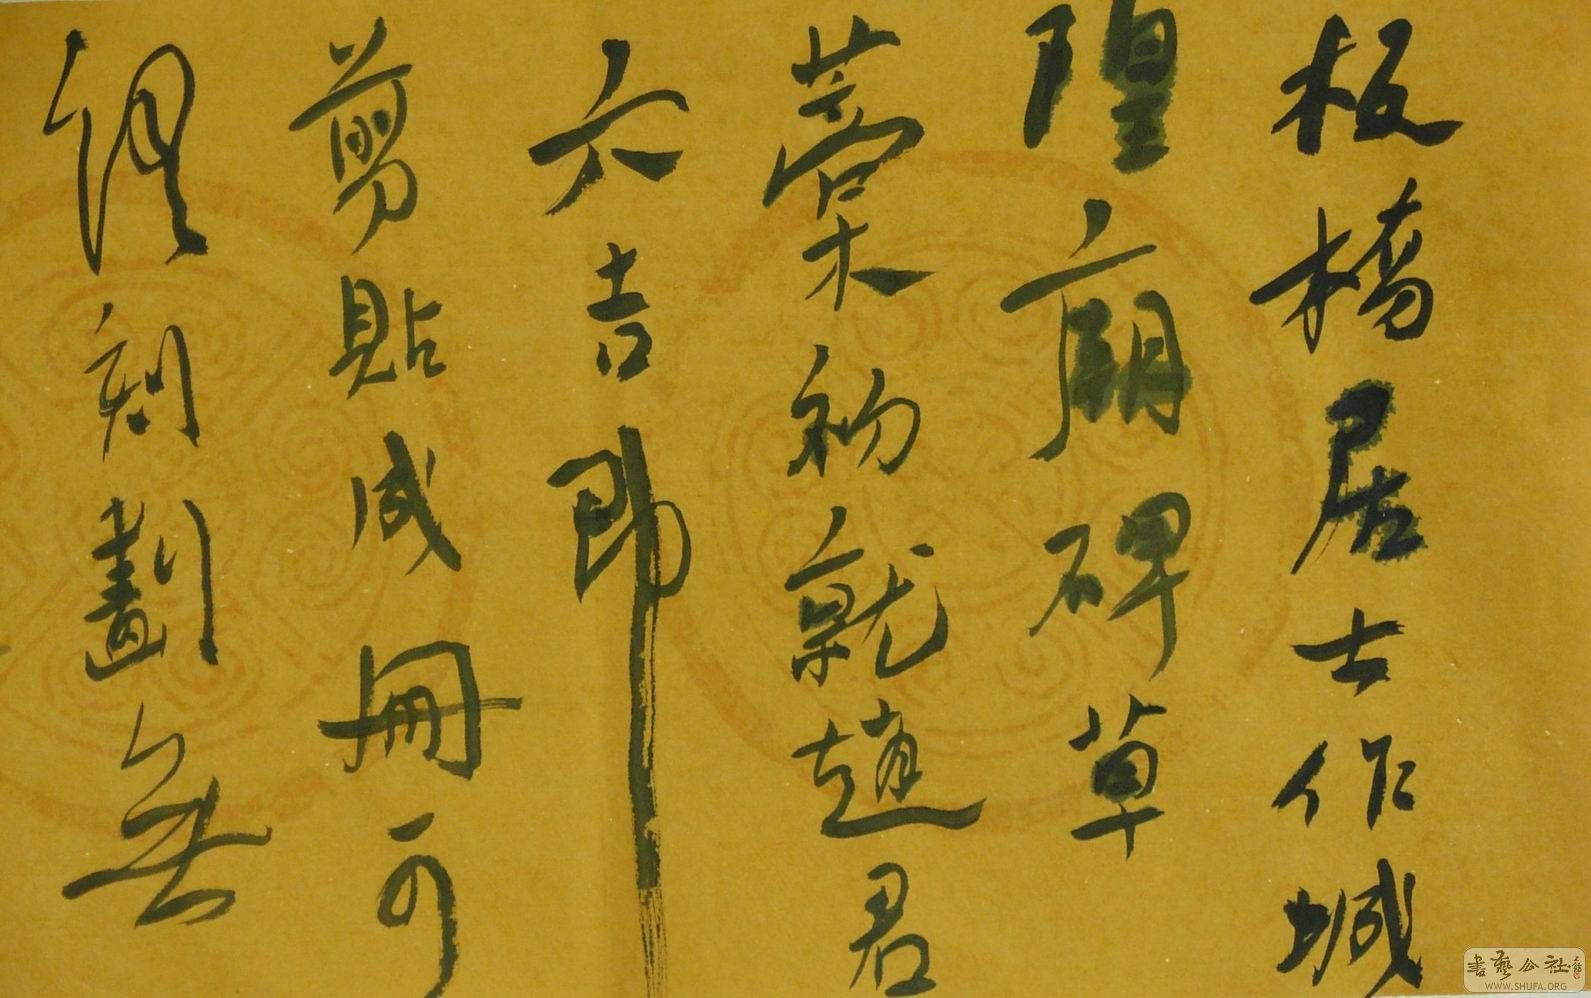 板橋居士作城
隍廟碑草
藁初就趙君
六吉即
剪貼成冊可
謂刻劃無
書藝公社
WWW.SHUFA.ORG